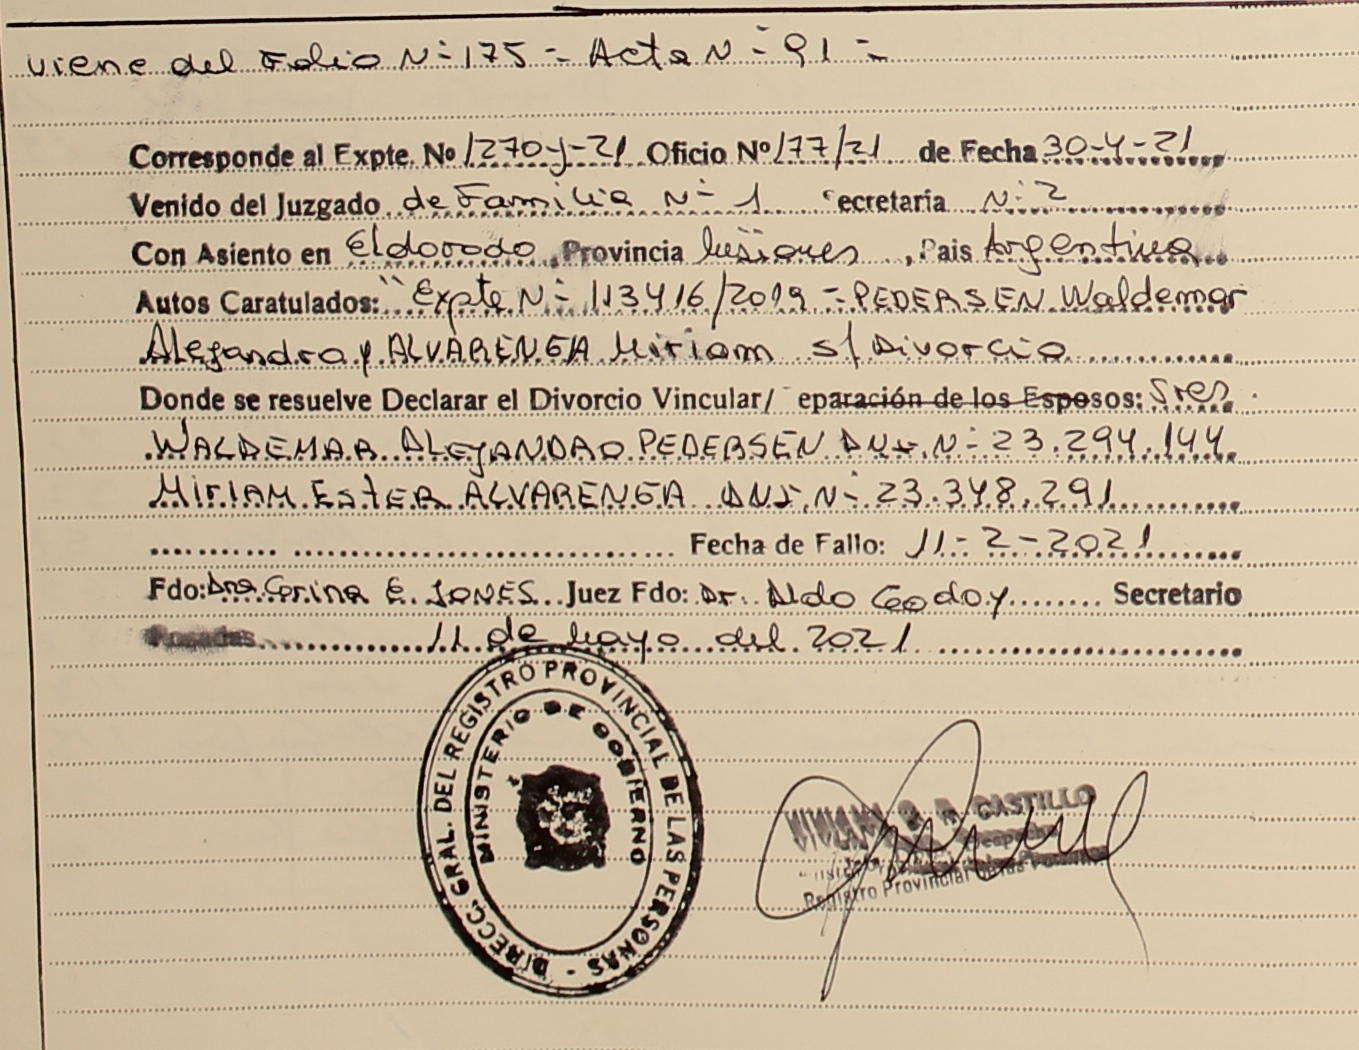 viene del Folio N- 175 - Acta N- 91 -
Corresponde al Expte. Nº 1270-y-21 Oficio Nº 177/21 de Fecha 30-4-21
Venido del Juzgado de Familia N- 1 ecretaria N- 2
Con Asiento en Eldorado, Provincia Misiones, Pais Argentina
Autos Caratulados: "Expte N- 113416/2019 - PEDERSEN Waldemar
Alejandro y ALVARENGA Miriam s/Divorcio
Donde se resuelve Declarar el Divorcio Vincular/ eparación de los Esposos: Sres
WALDEMAR ALEJANDRO PEDERSEN DNI. N- 23.294.144
MIRIAM ESTER ALVARENGA DNI. N- 23.348.291
Fecha de Fallo: 11-2-2021
Fdo: Dra. Corina E. JONES Juez Fdo: Dr. Aldo Godoy Secretario
Posadas 11 de Mayo del 2021
DIRECC. GRAL. DEL REGISTRO PROVINCIAL DE LAS PERSONAS -
MINISTERIO DE GOBIERNO
CASTILLO
Registro Provincial de las